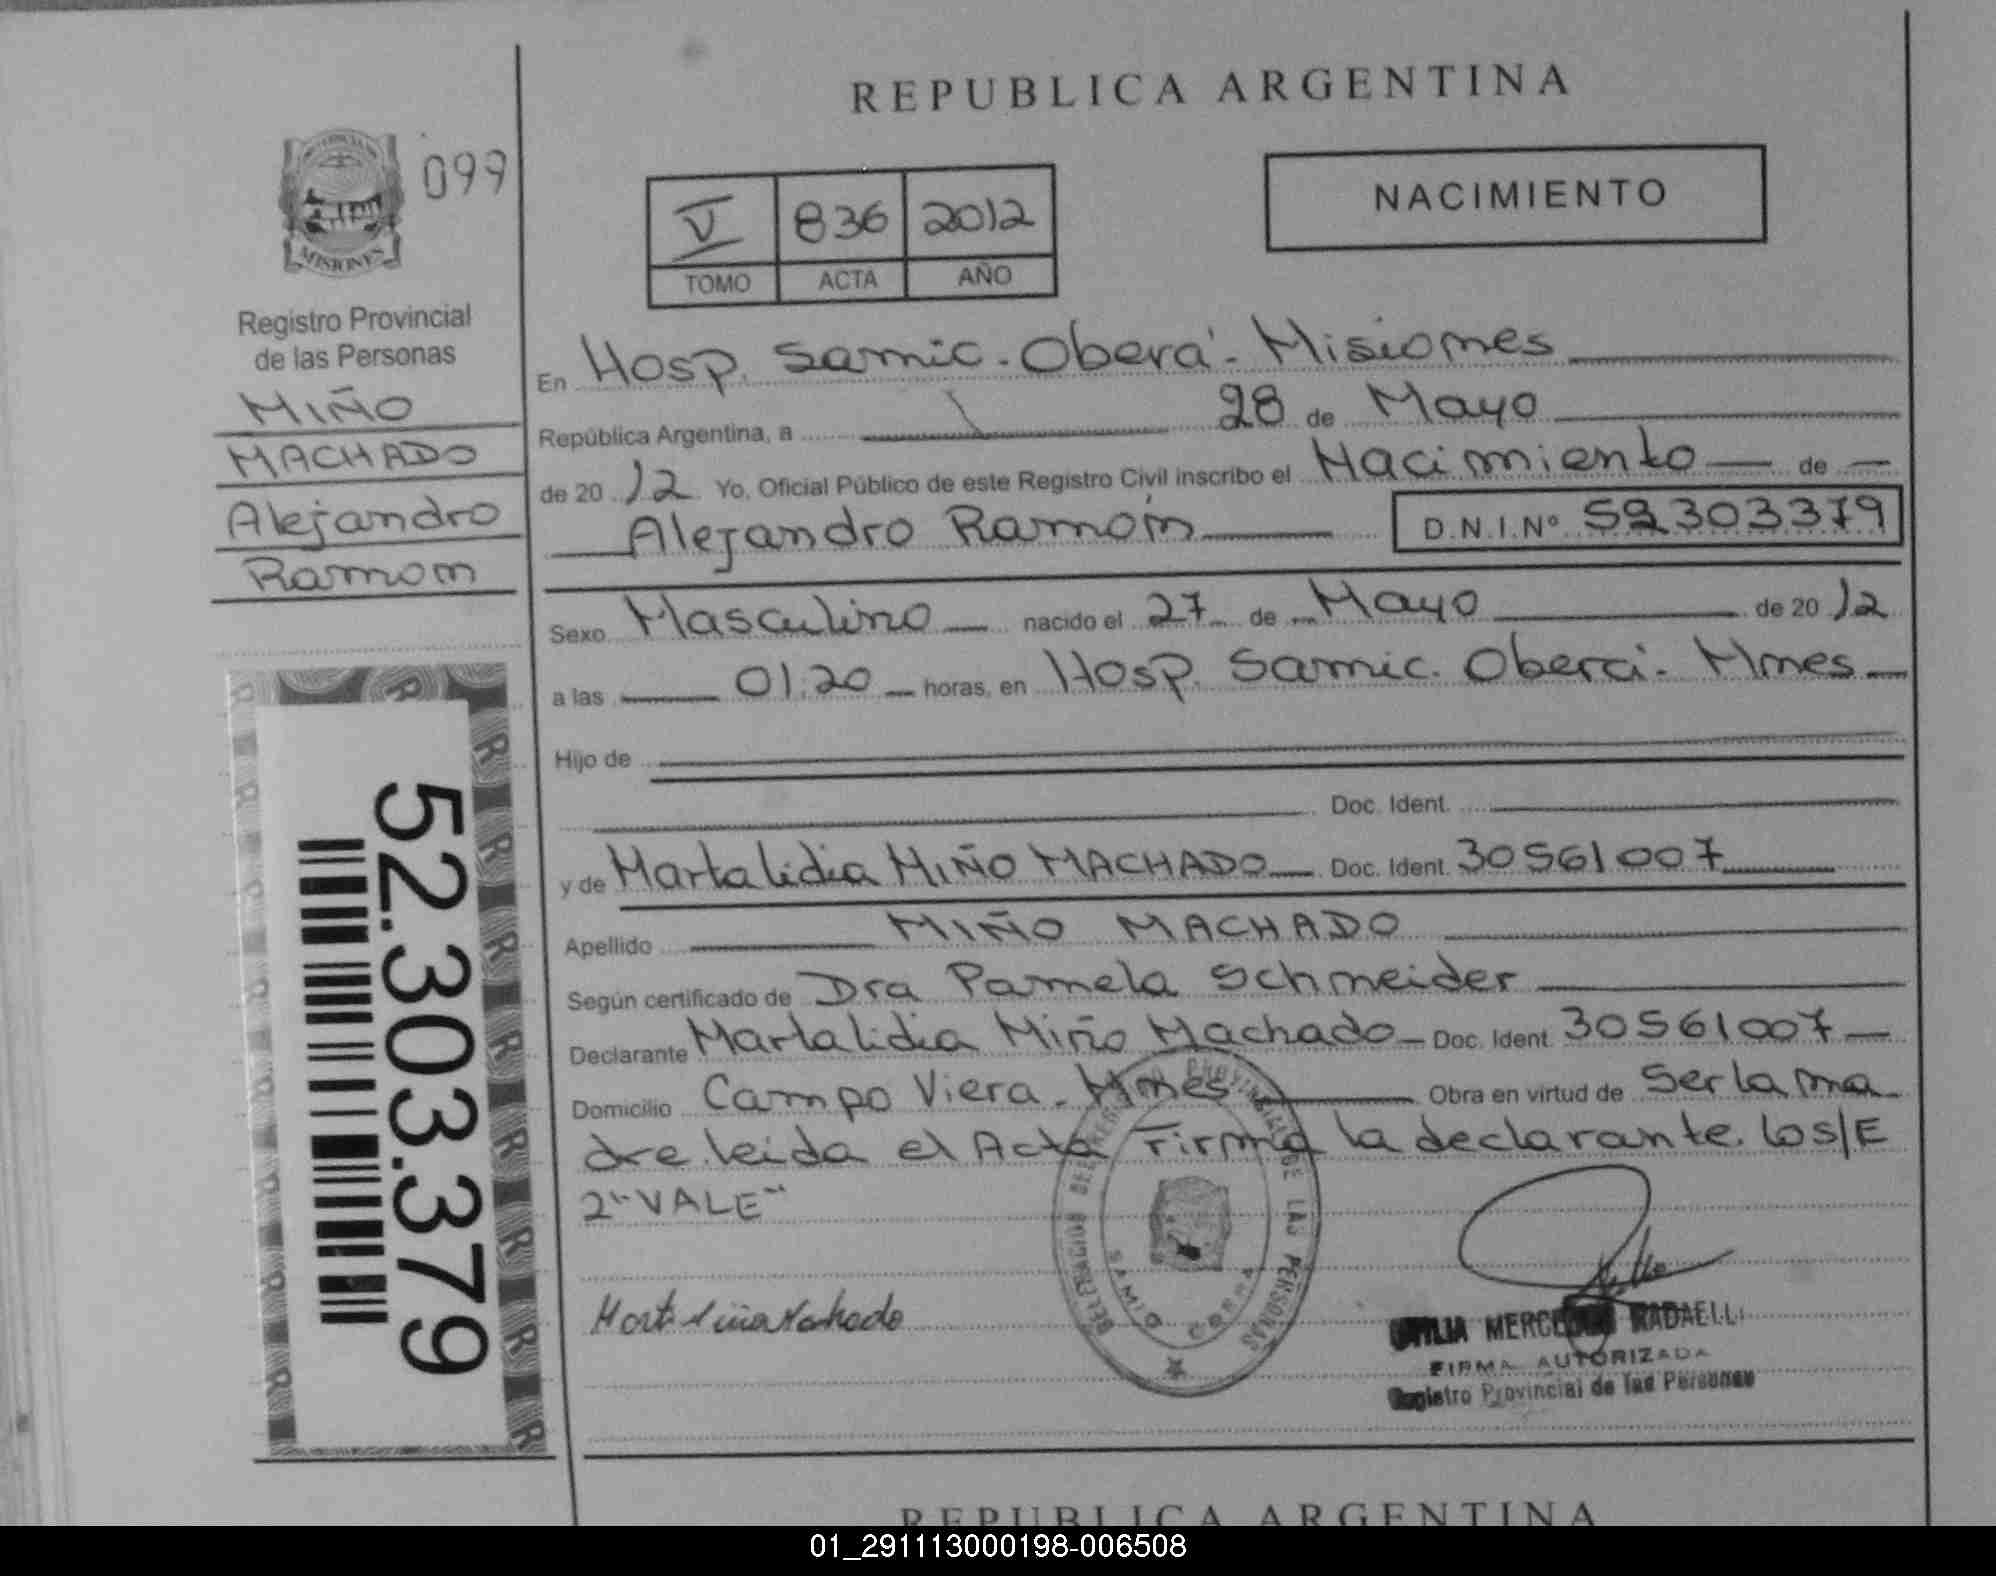 REPUBLICA ARGENTINA
MISIONES
099
Registro Provincial
de las Personas
MIÑO
MACHADO
Alejandro
Ramon
52.303.379
V 836 2012
TOMO ACTA AÑO
NACIMIENTO
En Hosp. Samic. Oberá - Misiones
República Argentina, a 28 de Mayo
de 2012 Yo, Oficial Público de este Registro Civil inscribo el Nacimiento de
Alejandro Ramón D.N.I.Nº 52303379
Sexo Masculino nacido el 27 de Mayo de 2012
a las 01.20 horas, en Hosp. Samic. Oberá - Mnes
Hijo de
Doc. Ident.
y de Marta Lidia MIÑO MACHADO Doc. Ident. 30561007
Apellido MIÑO MACHADO
Según certificado de Dra Pamela Schneider
Declarante Marta Lidia Miño Machado Doc. Ident. 30561007
Domicilio Campo Viera - Mnes Obra en virtud de Ser la ma
dre. leida el Acta Firma la declarante. los/E
2 "VALE"
DE LAS PERSONAS
MERCEDES RADAELLI
FIRMA AUTORIZADA
Registro Provincial de las Personas
REPUBLICA ARGENTINA
01_291113000198-006508